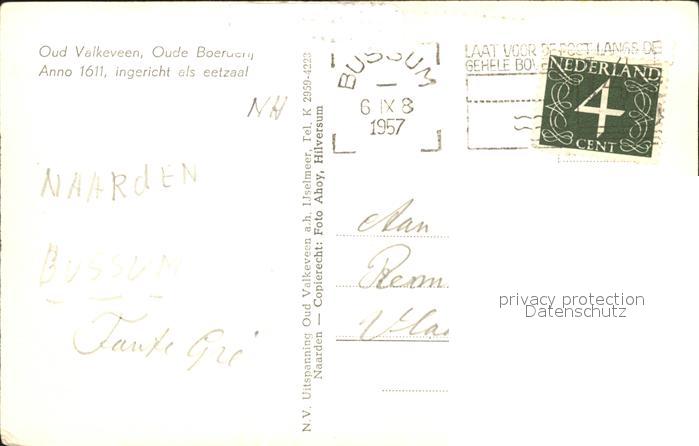 Oud Valkeveen, Oude Boerderij
Anno 1611, ingericht als eetzaal
NH
NAARDEN
BUSSUM
Tante Gré
N.V. Uitspanning Oud Valkeveen a.h. IJselmeer, Tel. K 2959-4223
Naarden — Copierecht: Foto Ahoy, Hilversum
BUSSUM
6 IX 8
1957
LAAT VOOR DE POST LANGS DE
GEHELE
NEDERLAND
4
CENT
Aan
privacy protection
Datenschutz